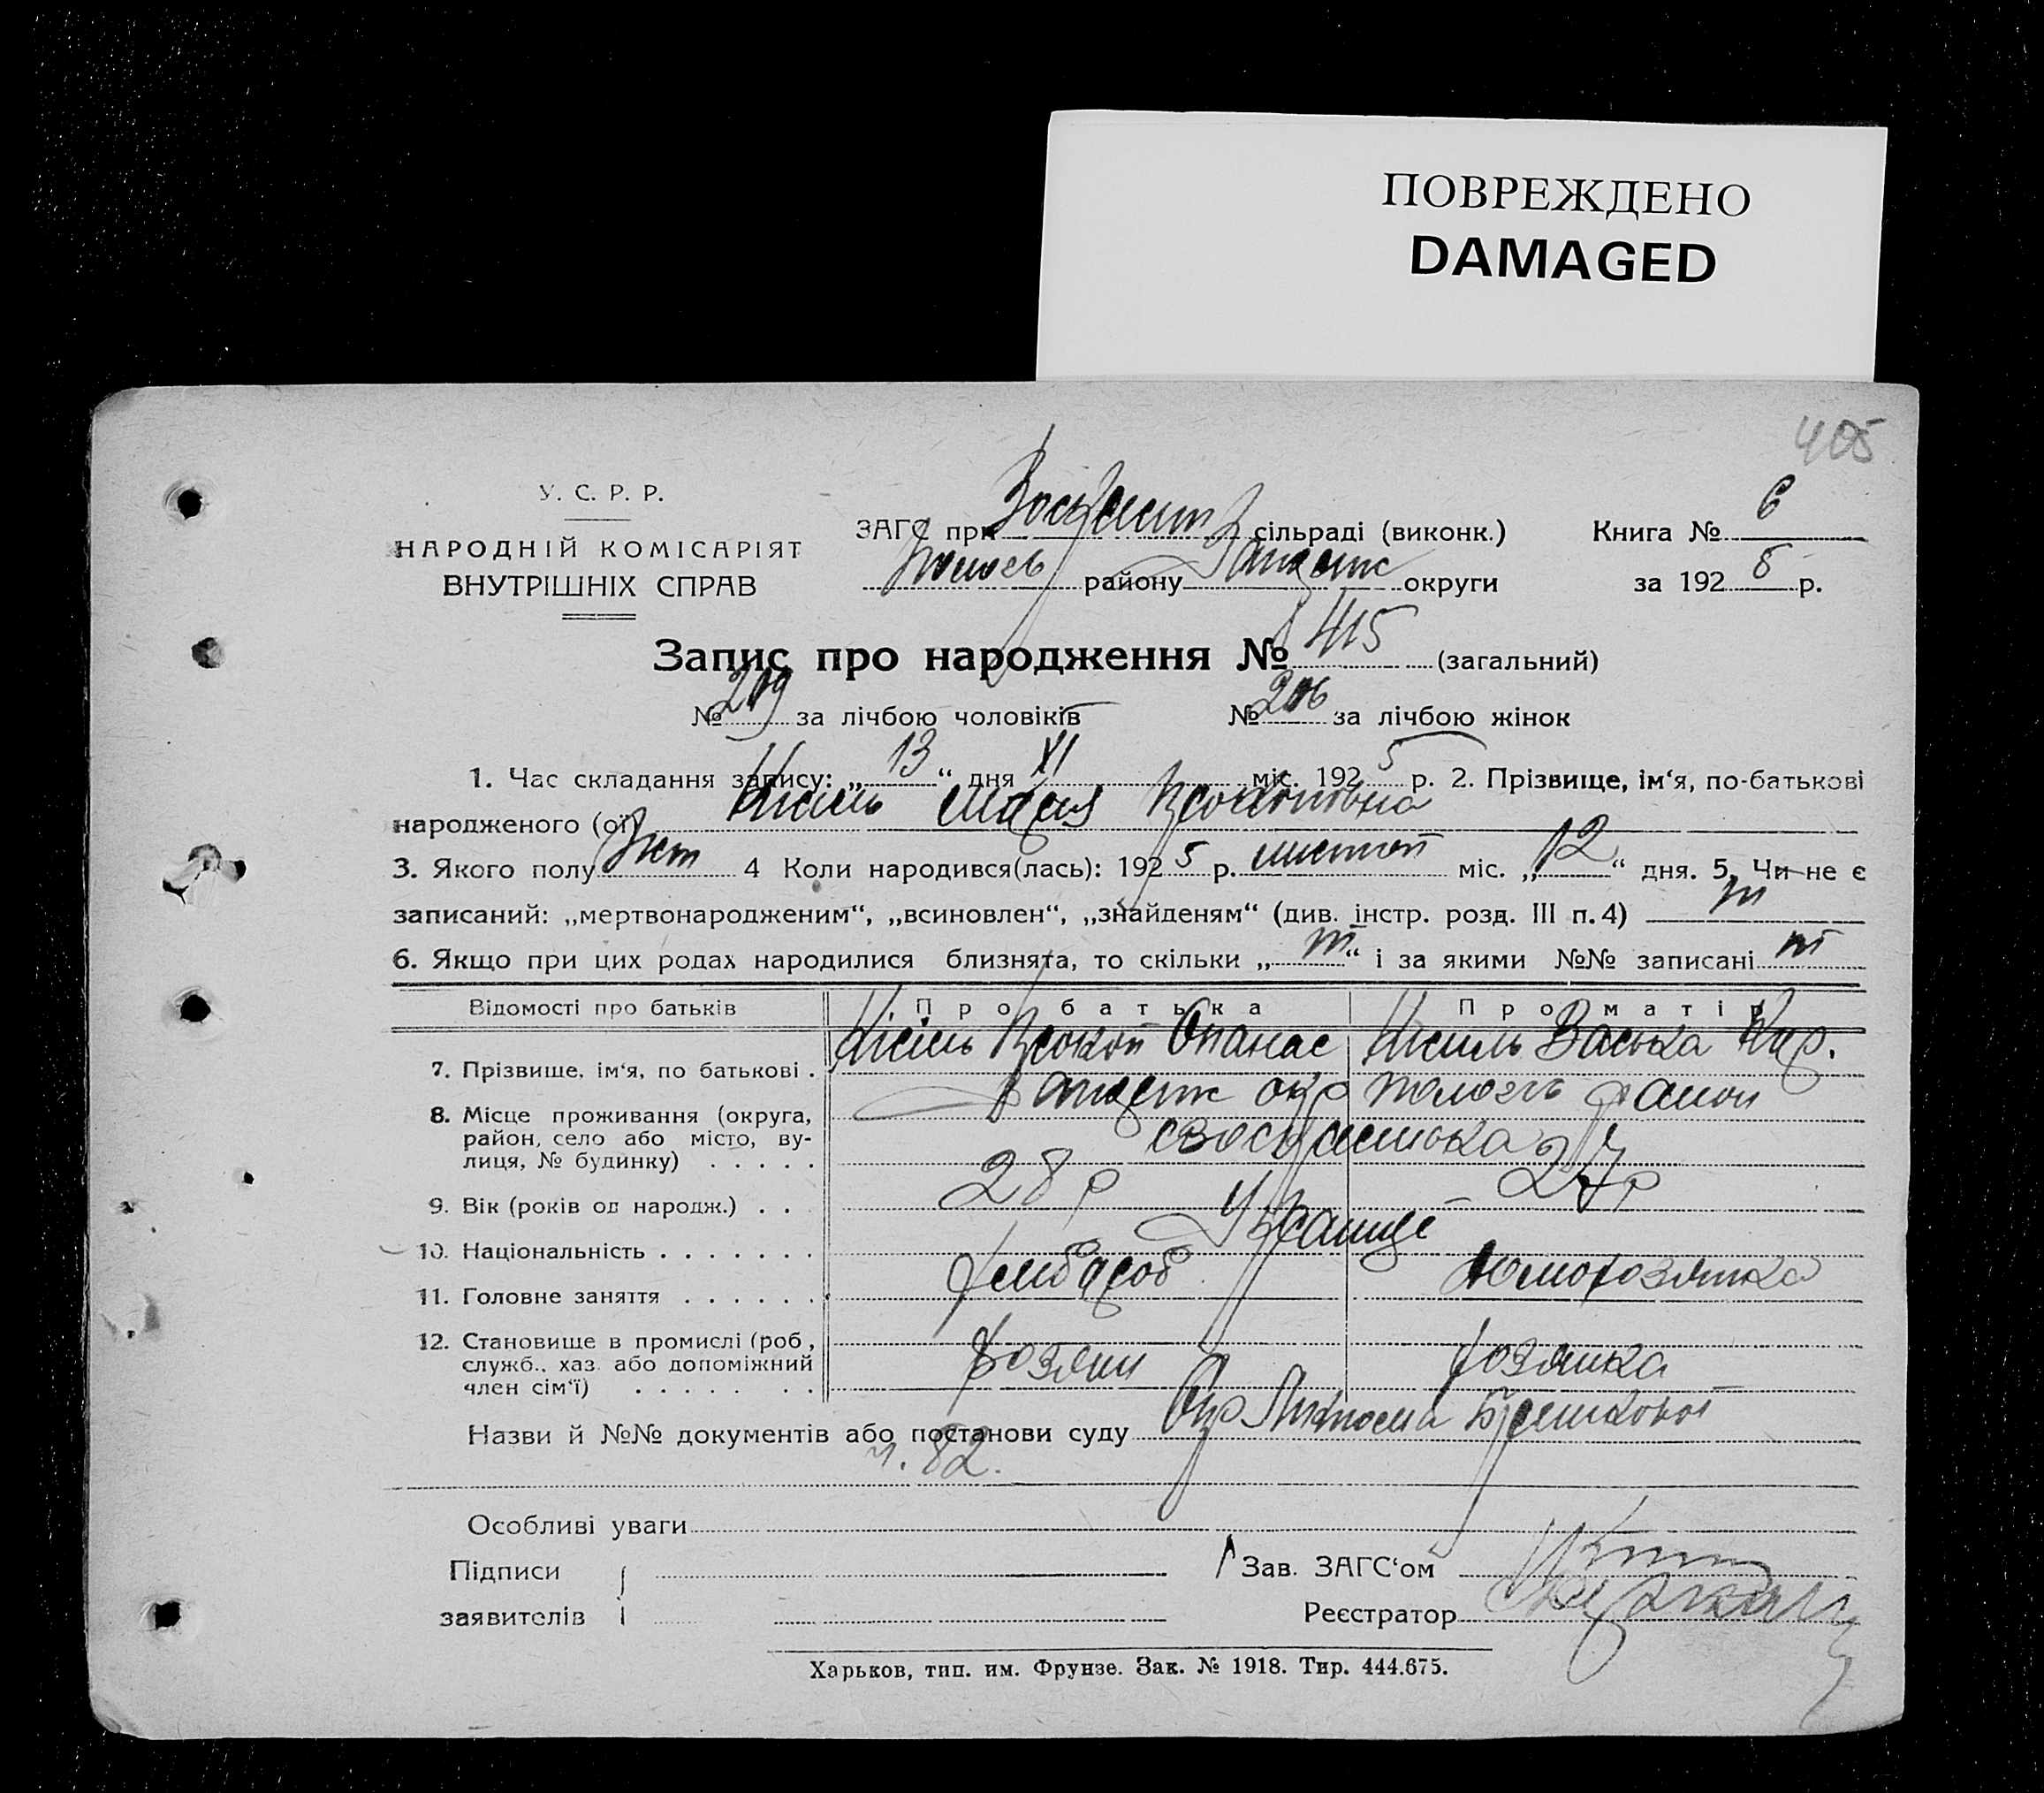 ПОВРЕЖДЕНО
DAMAGED
405
У. С. Р. Р.
НАРОДНІЙ КОМІСАРІЯТ
ВНУТРІШНІХ СПРАВ
ЗАГС при сільраді (виконк.)
району округи
Книга № 6
за 192 5 р.
Запис про народження № 415 (загальний)
№ 209 за лічбою чоловіків № 206 за лічбою жінок
1. Час складання запису: „ 13 “ дня XI міс. 192 5 р. 2. Прізвище, ім‘я, по-батькові
народженого (ої) Кісіль Марія Прокопівна
3. Якого полу жен 4 Коли народився(лась): 192 5 р. листоп міс. „ 12 “ дня. 5. Чи не є
записаний: „мертвонародженим“, „всиновлен“, „знайденям“ (див. інстр. розд. III п. 4) ні
6. Якщо при цих родах народилися близнята, то скільки „ ні “ і за якими №№ записані ні
Відомості про батьків Про батька Про матір
7. Прізвище, ім‘я, по батькові . Кісіль Прокоп Опанас Кисиль Васька
8. Місце проживання (округа,
район, село або місто, ву-
лиця, № будинку) . . . . .
Запоріж окр район
9. Вік (років од народж.) . . 28 р 27 р
10. Національність . . . . . . . Українці
11. Головне заняття . . . . . . хлібороб домохозяйка
12. Становище в промислі (роб,
служб., хаз. або допоміжний
член сім‘ї) . . . . . . .
хозяин хозяйка
Назви й №№ документів або постанови суду
ч. 82.
Особливі уваги
Підписи
заявителів
Зав. ЗАГС‘ом
Реєстратор
Харьков, тип. им. Фрунзе. Зак. № 1918. Тир. 444.675.